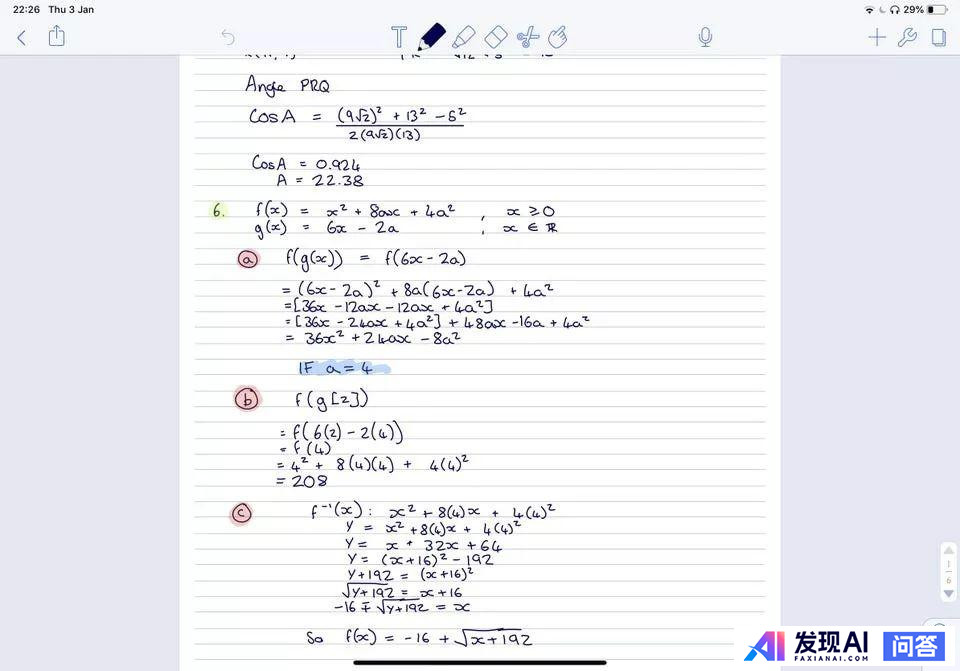 22:26 Thu 3 Jan
29%
T
Angle PRQ
CosA = (9√2)² + 13² - 5²
2(9√2)(13)
CosA = 0.924
A = 22.38
6. f(x) = x² + 8ax + 4a² , x ≥ 0
g(x) = 6x - 2a , x ∈ ℝ
ⓐ f(g(x)) = f(6x - 2a)
= (6x - 2a)² + 8a(6x - 2a) + 4a²
= [36x - 12ax - 12ax + 4a²]
= [36x - 24ax + 4a²] + 48ax - 16a + 4a²
= 36x² + 24ax - 8a²
IF a = 4
ⓑ f(g[2])
= f(6(2) - 2(4))
= f(4)
= 4² + 8(4)(4) + 4(4)²
= 208
ⓒ f⁻¹(x) : x² + 8(4)x + 4(4)²
Y = x² + 8(4)x + 4(4)²
Y = x + 32x + 64
Y = (x+16)² - 192
Y + 192 = (x+16)²
√Y+192 = x + 16
-16 ∓ √Y+192 = x
So f(x) = -16 + √x+192
1
6
AI 发现AI 问答
FAXIANAI.COM